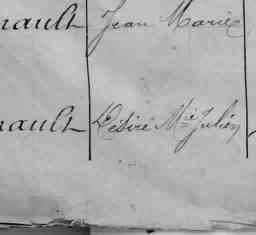 nault Jean Marie
nault Désiré Mie Julien